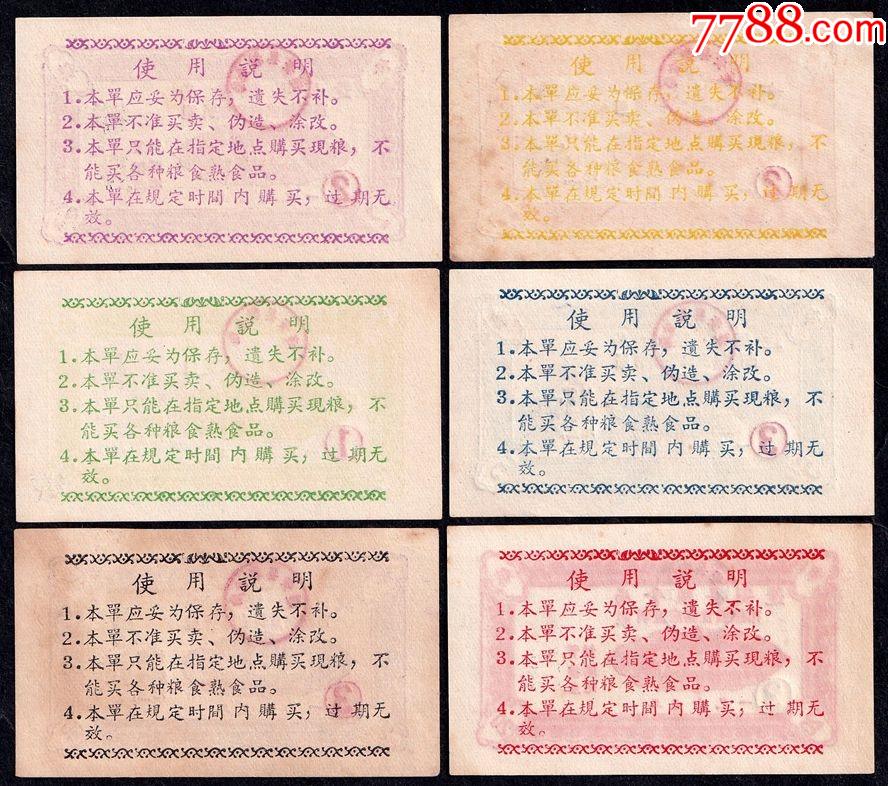 7788.com
使用説明
1.本單应妥为保存，遺失不补。
2.本單不准买卖、伪造、涂改。
3.本單只能在指定地点購买現粮，不
能买各种粮食熟食品。
4.本單在規定时間内購买，过期无
效。
②
使用説明
1.本單应妥为保存，遺失不补。
2.本單不准买卖、伪造、涂改。
3.本單只能在指定地点購买現粮，不
能买各种粮食熟食品。
4.本單在規定时間内購买，过期无
效。
②
使用説明
1.本單应妥为保存，遺失不补。
2.本單不准买卖、伪造、涂改。
3.本單只能在指定地点購买現粮，不
能买各种粮食熟食品。
4.本單在規定时間内購买，过期无
效。
①
使用説明
1.本單应妥为保存，遺失不补。
2.本單不准买卖、伪造、涂改。
3.本單只能在指定地点購买現粮，不
能买各种粮食熟食品。
4.本單在規定时間内購买，过期无
效。
使用説明
1.本單应妥为保存，遺失不补。
2.本單不准买卖、伪造、涂改。
3.本單只能在指定地点購买現粮，不
能买各种粮食熟食品。
4.本單在規定时間内購买，过期无
效。
使用説明
1.本單应妥为保存，遺失不补。
2.本單不准买卖、伪造、涂改。
3.本單只能在指定地点購买現粮，不
能买各种粮食熟食品。
4.本單在規定时間内購买，过期无
效。